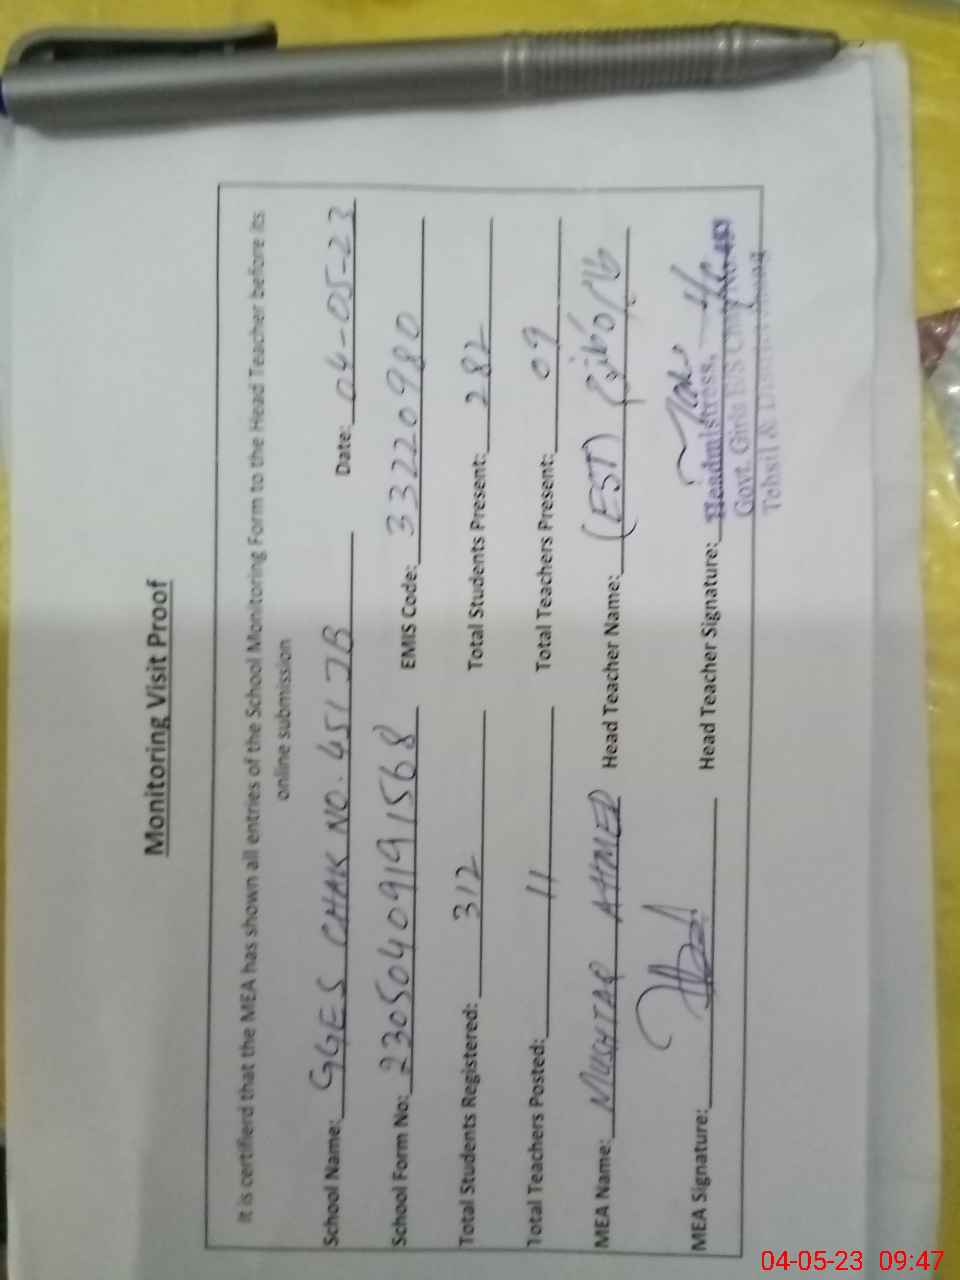 Monitoring Visit Proof
It is certifierd that the MEA has shown all entries of the School Monitoring Form to the Head Teacher before its
online submission
School Name: GGES CHAK NO. 451 JB Date: 04-05-23
School Form No: 23050409191568 EMIS Code: 33220980
Total Students Registered: 312 Total Students Present: 282
Total Teachers Posted: 11 Total Teachers Present: 09
MEA Name: MUSHTAQ AHMED Head Teacher Name: (EST)
MEA Signature: Head Teacher Signature:
Headmistress,
Govt. Girls E/S Chak No. 451
Tehsil & District
04-05-23 09:47